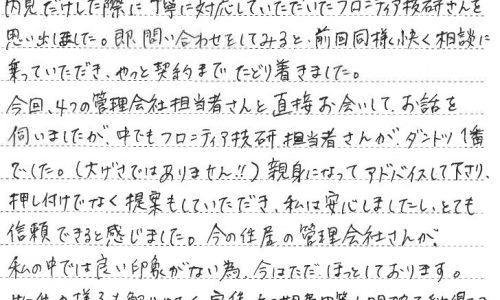 内見だけした際に丁寧に対応していただいたフロンティア技研さんを
思い出しました。即、問い合わせをしてみると、前回同様、快く相談に
乗っていただき、やっと契約までたどり着きました。
今回、4つの管理会社担当者さんと直接お会いして、お話を
伺いましたが、中でもフロンティア技研担当者さんが、ダントツ1番
でした。(大げさではありません!!)親身になってアドバイスして下さり、
押し付けでなく提案もしていただき、私は安心しましたし、とても
信頼できると感じました。今の住屋の管理会社さんが、
私の中では良い印象がない為、今はただ、ほっとしております。